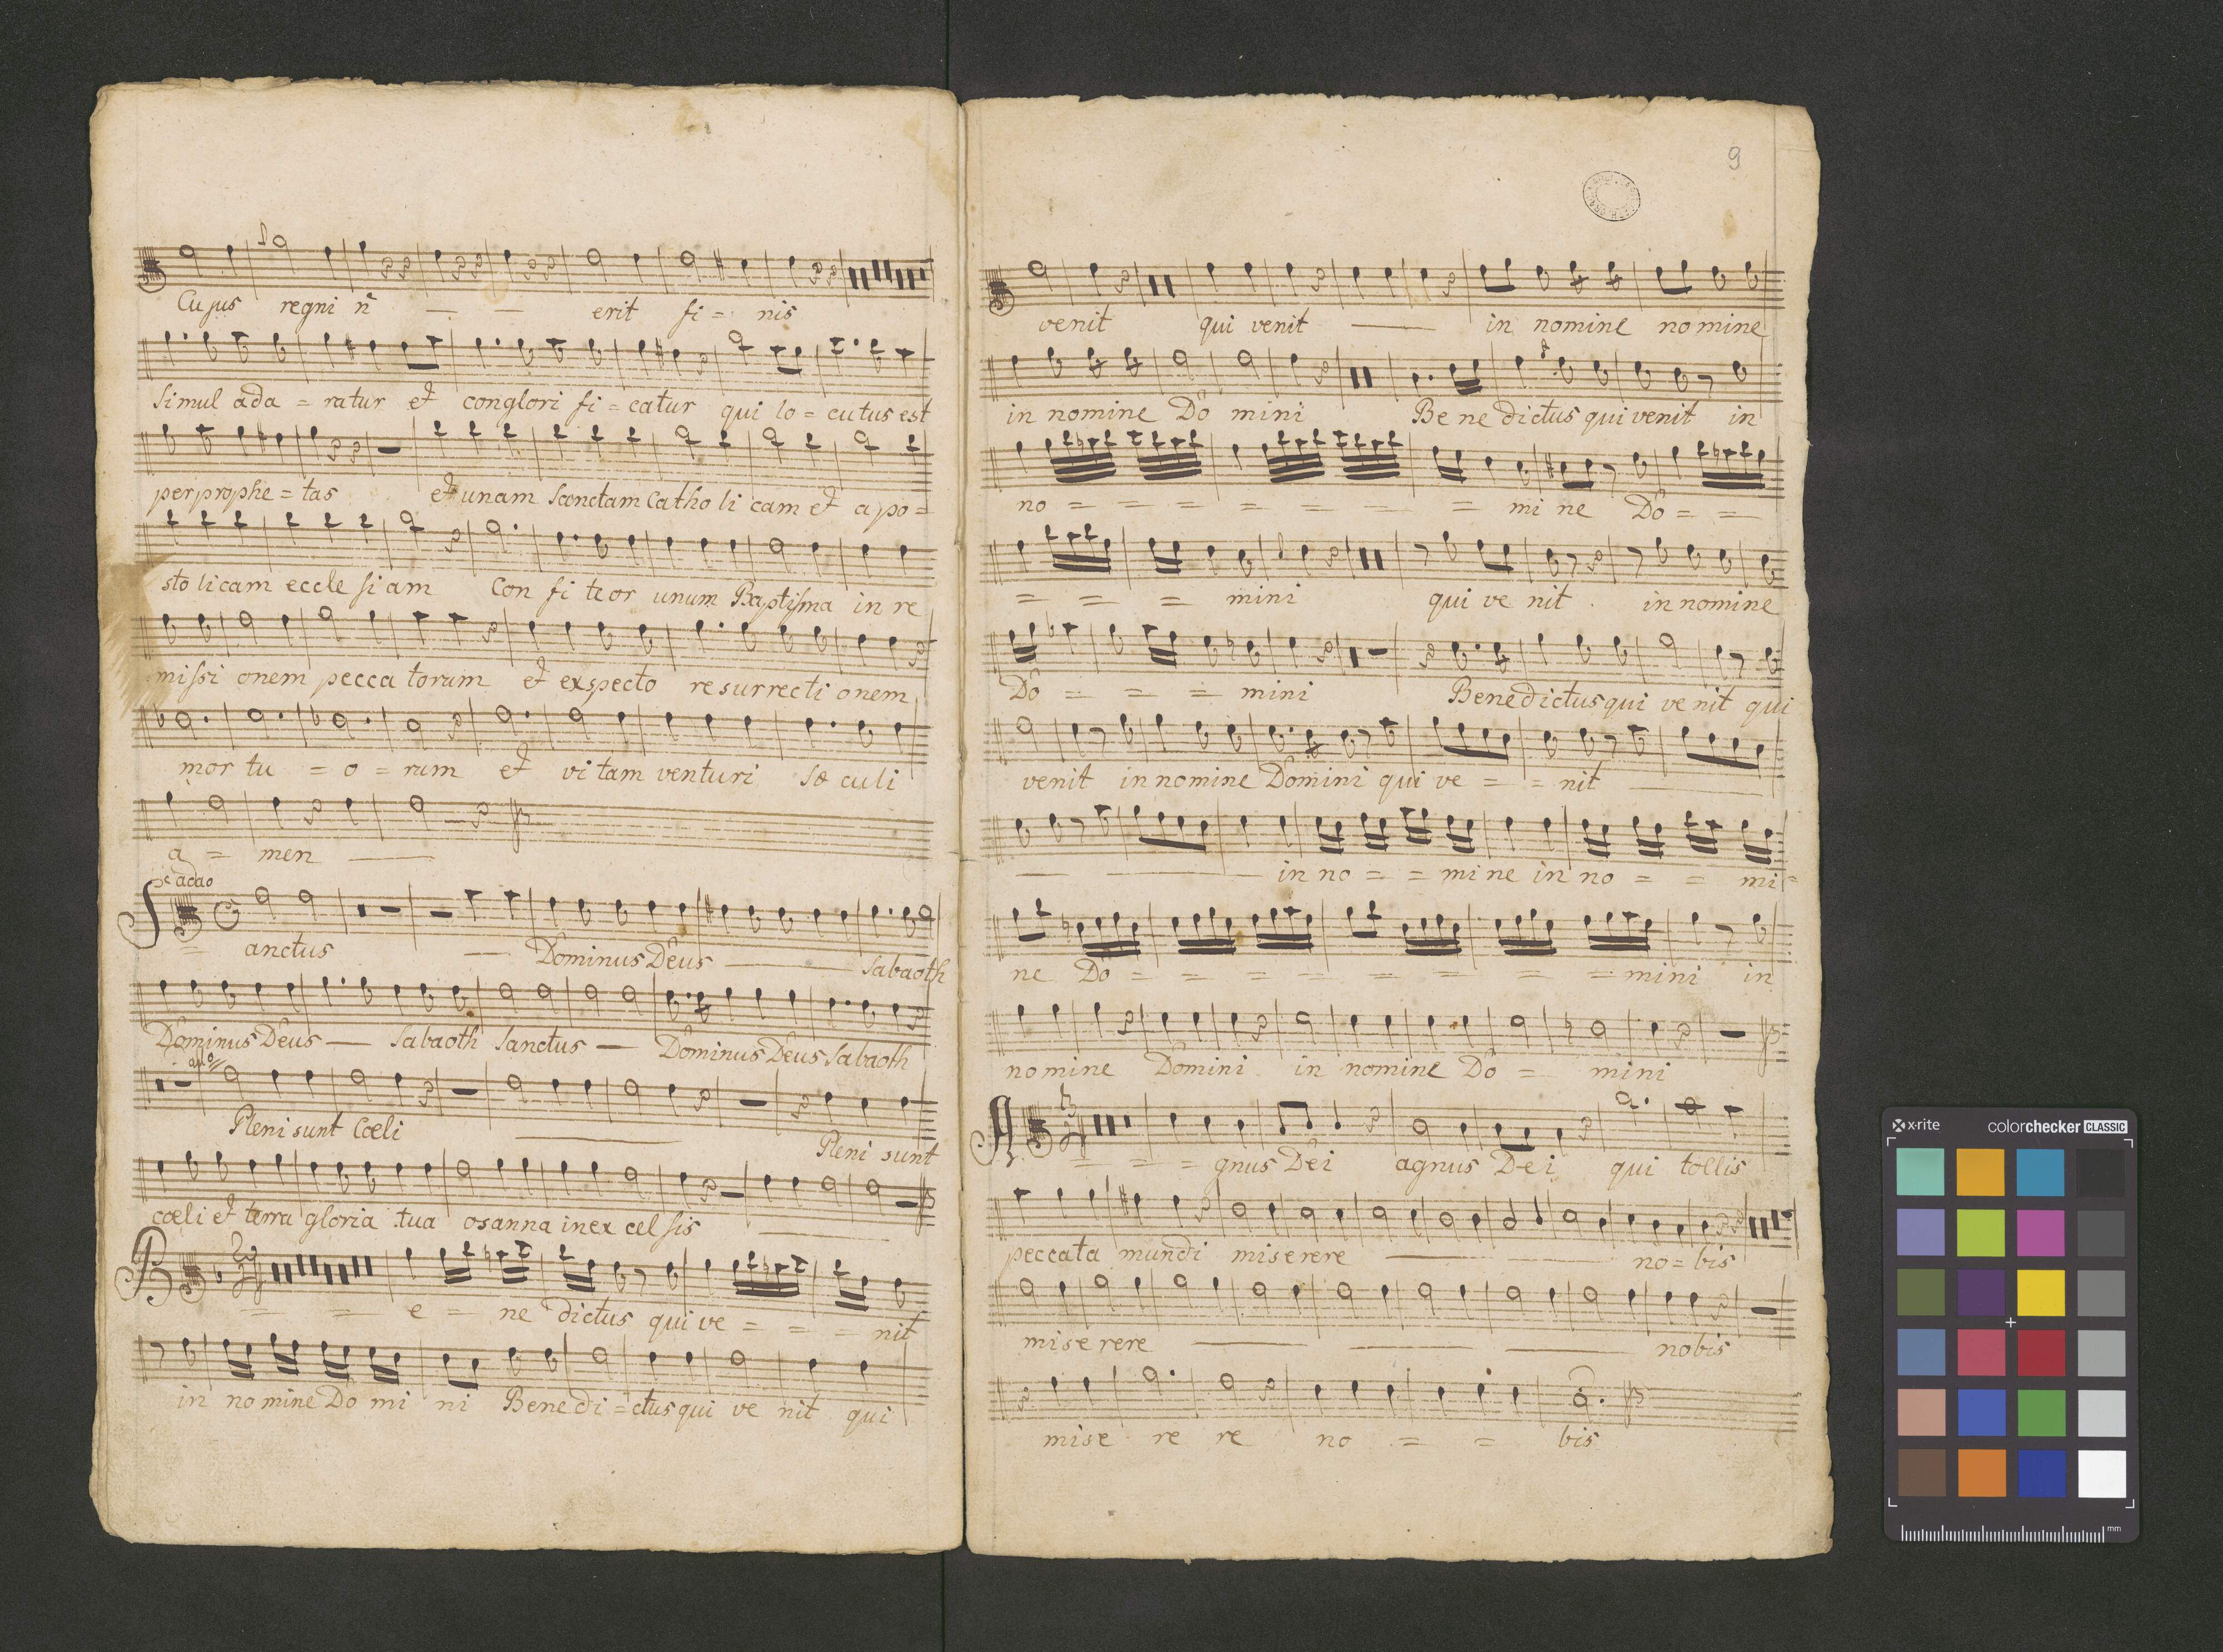 Cujus regni n̄ — — erit fi = nis
Simul ada = ratur et conglori fi = catur qui lo = cutus est
per prophe = tas et unam Sanctam Catho li cam et a po =
sto licam eccle siam Con fi te or unum Baptisma in re
missi onem pecca torum et exspecto re surrecti onem
mor tu = o = rum et vi tam venturi sæ culi
a = men —
adao
S = anctus — Dominus Deus — Sabaoth
Dominus Deus — Sabaoth Sanctus — Dominus Deus Sabaoth
Pleni sunt Cœli — Pleni sunt
cœli et terra gloria tua osanna in ex cel sis —
B = = e = ne dictus qui ve = = = nit
in no mine Do mi ni Bene di = ctus qui ve nit qui
9
venit qui venit — in nomine no mine
in nomine Do mini Be ne dictus qui venit in
no = = = = = = = mi ne Do = =
= = = mini qui ve nit in nomine
Do = = = mini Benedictus qui ve nit qui
venit in nomine Domini qui ve = = nit —
— — — in no = = mi ne in no = = mi =
ne Do = = = = = = = = mini in
no mine Domini in nomine Do = mini
A = = = gnus Dei agnus Dei qui tollis
peccata mundi miserere — — no = bis
mise rere — — — nobis
mise re re no = = bis
x-rite
colorchecker CLASSIC
mm